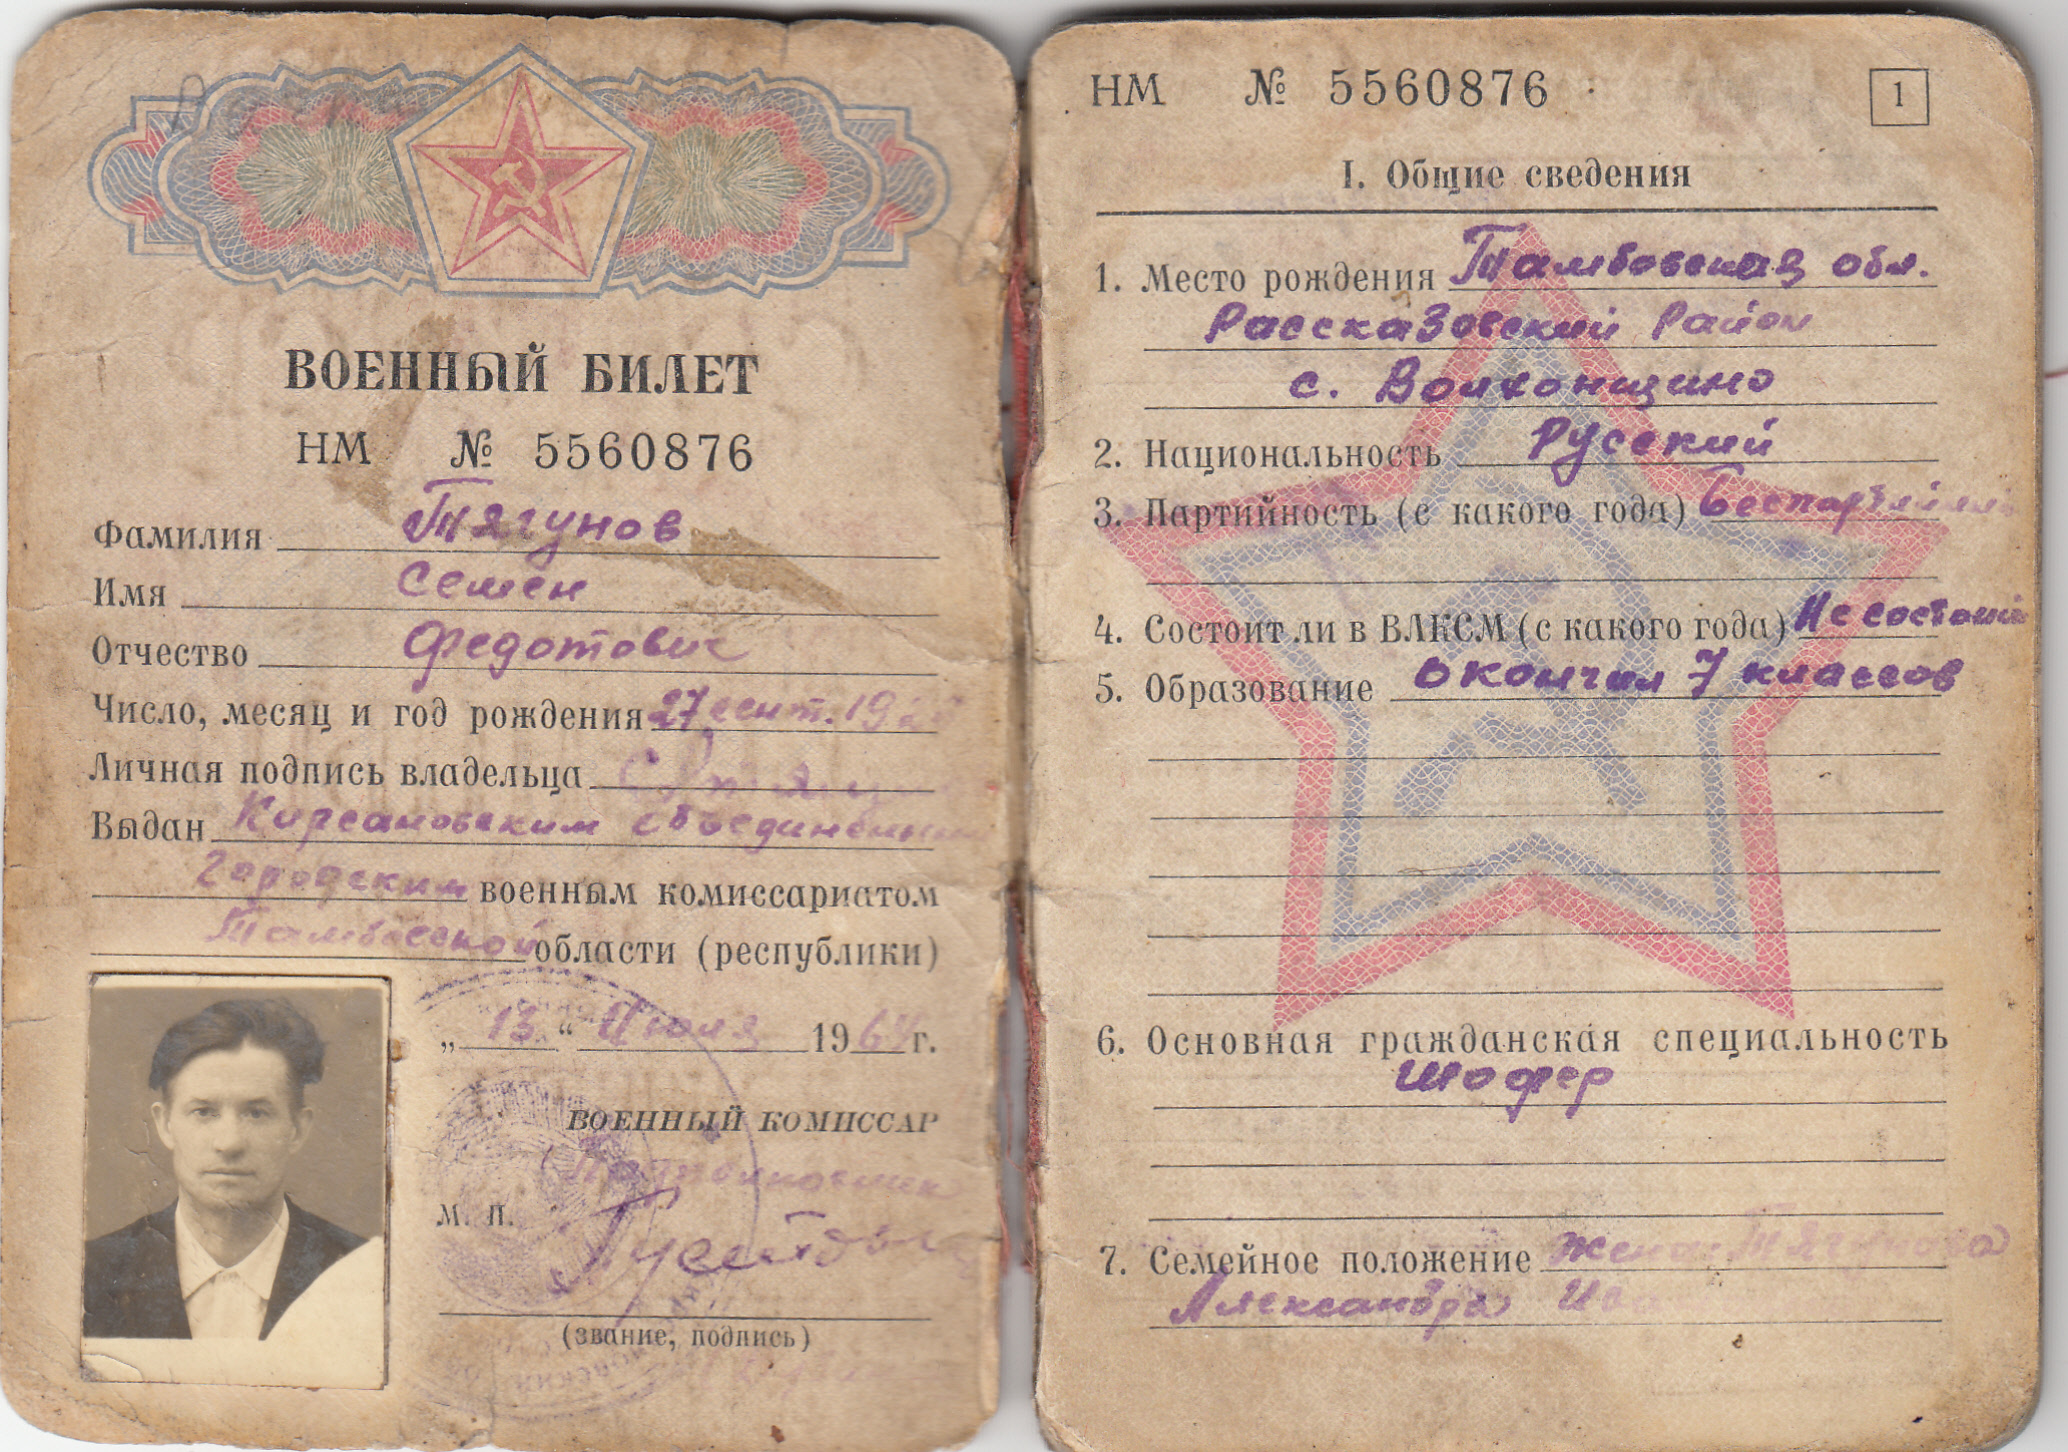 ВОЕННЫЙ БИЛЕТ
НМ № 5560876
Фамилия Тягунов
Имя Семен
Отчество Федотович
Число, месяц и год рождения 27 сент. 19
Личная подпись владельца
Выдан Кирсановским объединенным
городским военным комиссариатом
Тамбовской области (республики)
„13“ Июля 1964 г.
ВОЕННЫЙ КОМИССАР
Подполковник
М. П.
(звание, подпись)
НМ № 5560876
1
I. Общие сведения
1. Место рождения Тамбовская обл.
Рассказовский район
с. Волхонщино
2. Национальность Русский
3. Партийность (с какого года) беспартийный
4. Состоит ли в ВЛКСМ (с какого года) Не состоит
5. Образование окончил 7 классов
6. Основная гражданская специальность
шофер
7. Семейное положение жена Тягунова
Александра